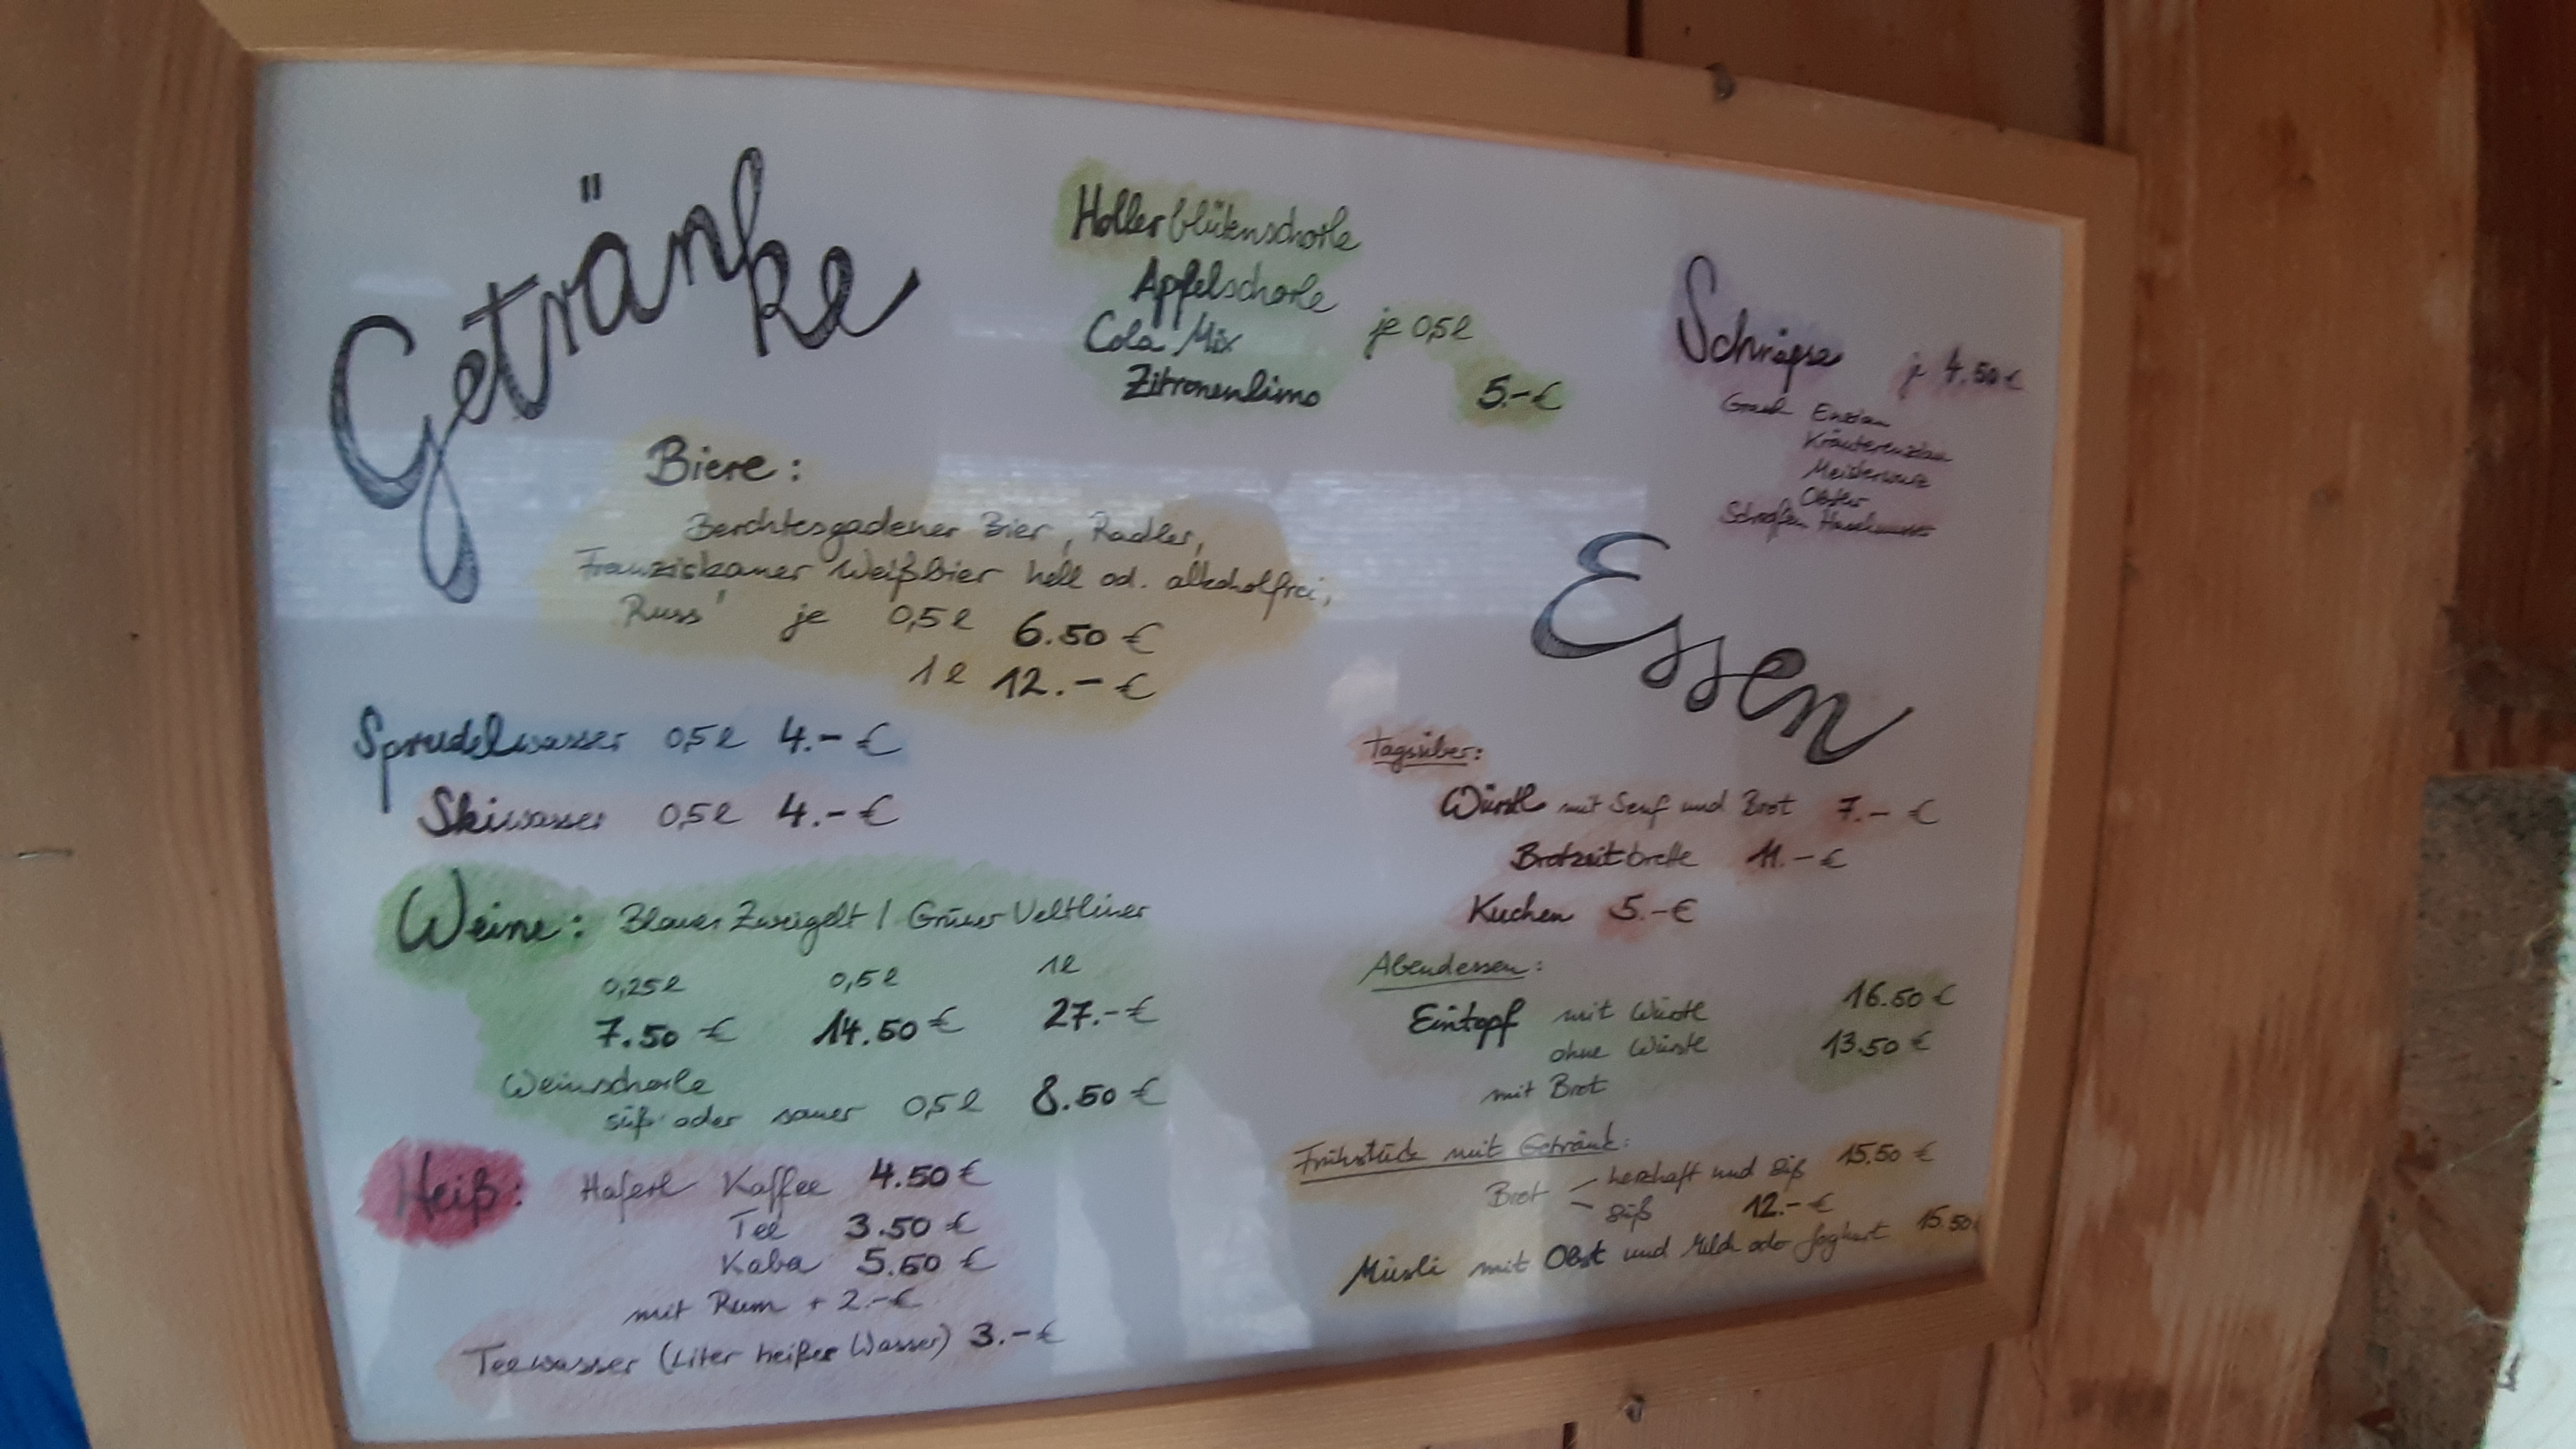 Getränke
Hollerblütenschorle
Apfelschorle
Cola Mix
Zitronenlimo
je 0,5 l
5.-€
Biere:
Berchtesgadener Bier, Radler,
Franziskaner Weißbier hell od. alkoholfrei,
Russ' je 0,5 l 6.50 €
1 l 12.-€
Sprudelwasser 0,5 l 4.-€
Skiwasser 0,5 l 4.-€
Weine: Blauer Zweigelt / Grüner Veltliner
0,25 l 0,5 l 1 l
7.50 € 14.50 € 27.-€
Weinschorle
süß oder sauer 0,5 l 8.50 €
Heiß: Haferl Kaffee 4.50 €
Tee 3.50 €
Kaba 5.50 €
mit Rum + 2.-€
Teewasser (Liter heißer Wasser) 3.-€
Schnäpse je 4.50 €
Enzian
Kräuterenzian
Meisterwurz
Obstler
Essen
Tagsüber:
Würstl mit Senf und Brot 7.-€
Brotzeitbrettl 11.-€
Kuchen 5.-€
Abendessen:
Eintopf mit Würstl 16.50 €
ohne Würstl 13.50 €
mit Brot
Frühstück mit Getränk:
Brot herzhaft und süß 15.50 €
süß 12.-€
Müsli mit Obst und Milch oder Joghurt 15.50